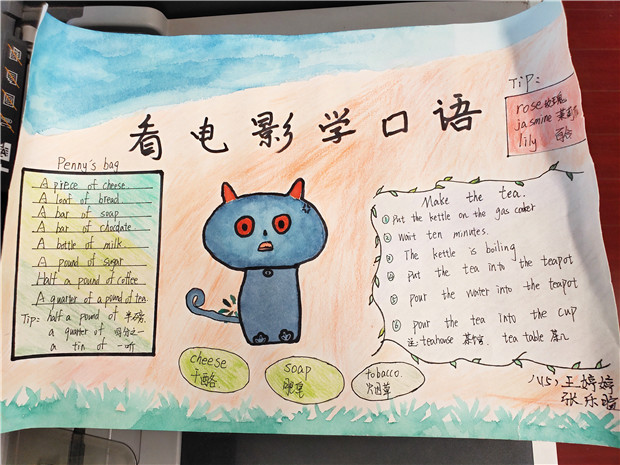 看电影学口语
Tip:
rose 玫瑰
jasmine 茉莉
lily 百合
Penny's bag
A piece of cheese
A loaf of bread
A bar of soap
A bar of chocolate
A bottle of milk
A pound of sugar
Half a pound of coffee
A quarter of a pound of tea
Tip: half a pound of 半磅
a quarter of 四分之一
a tin of 一听
Make the tea.
① Put the kettle on the gas cooker
② Wait ten minutes.
③ The kettle is boiling
④ put the tea into the teapot
⑤ pour the water into the teapot
⑥ pour the tea into the cup
注: teahouse 茶馆 tea table 茶几
cheese
干酪
soap
肥皂
tobacco
烟草
八(5) 王婷婷
张乐